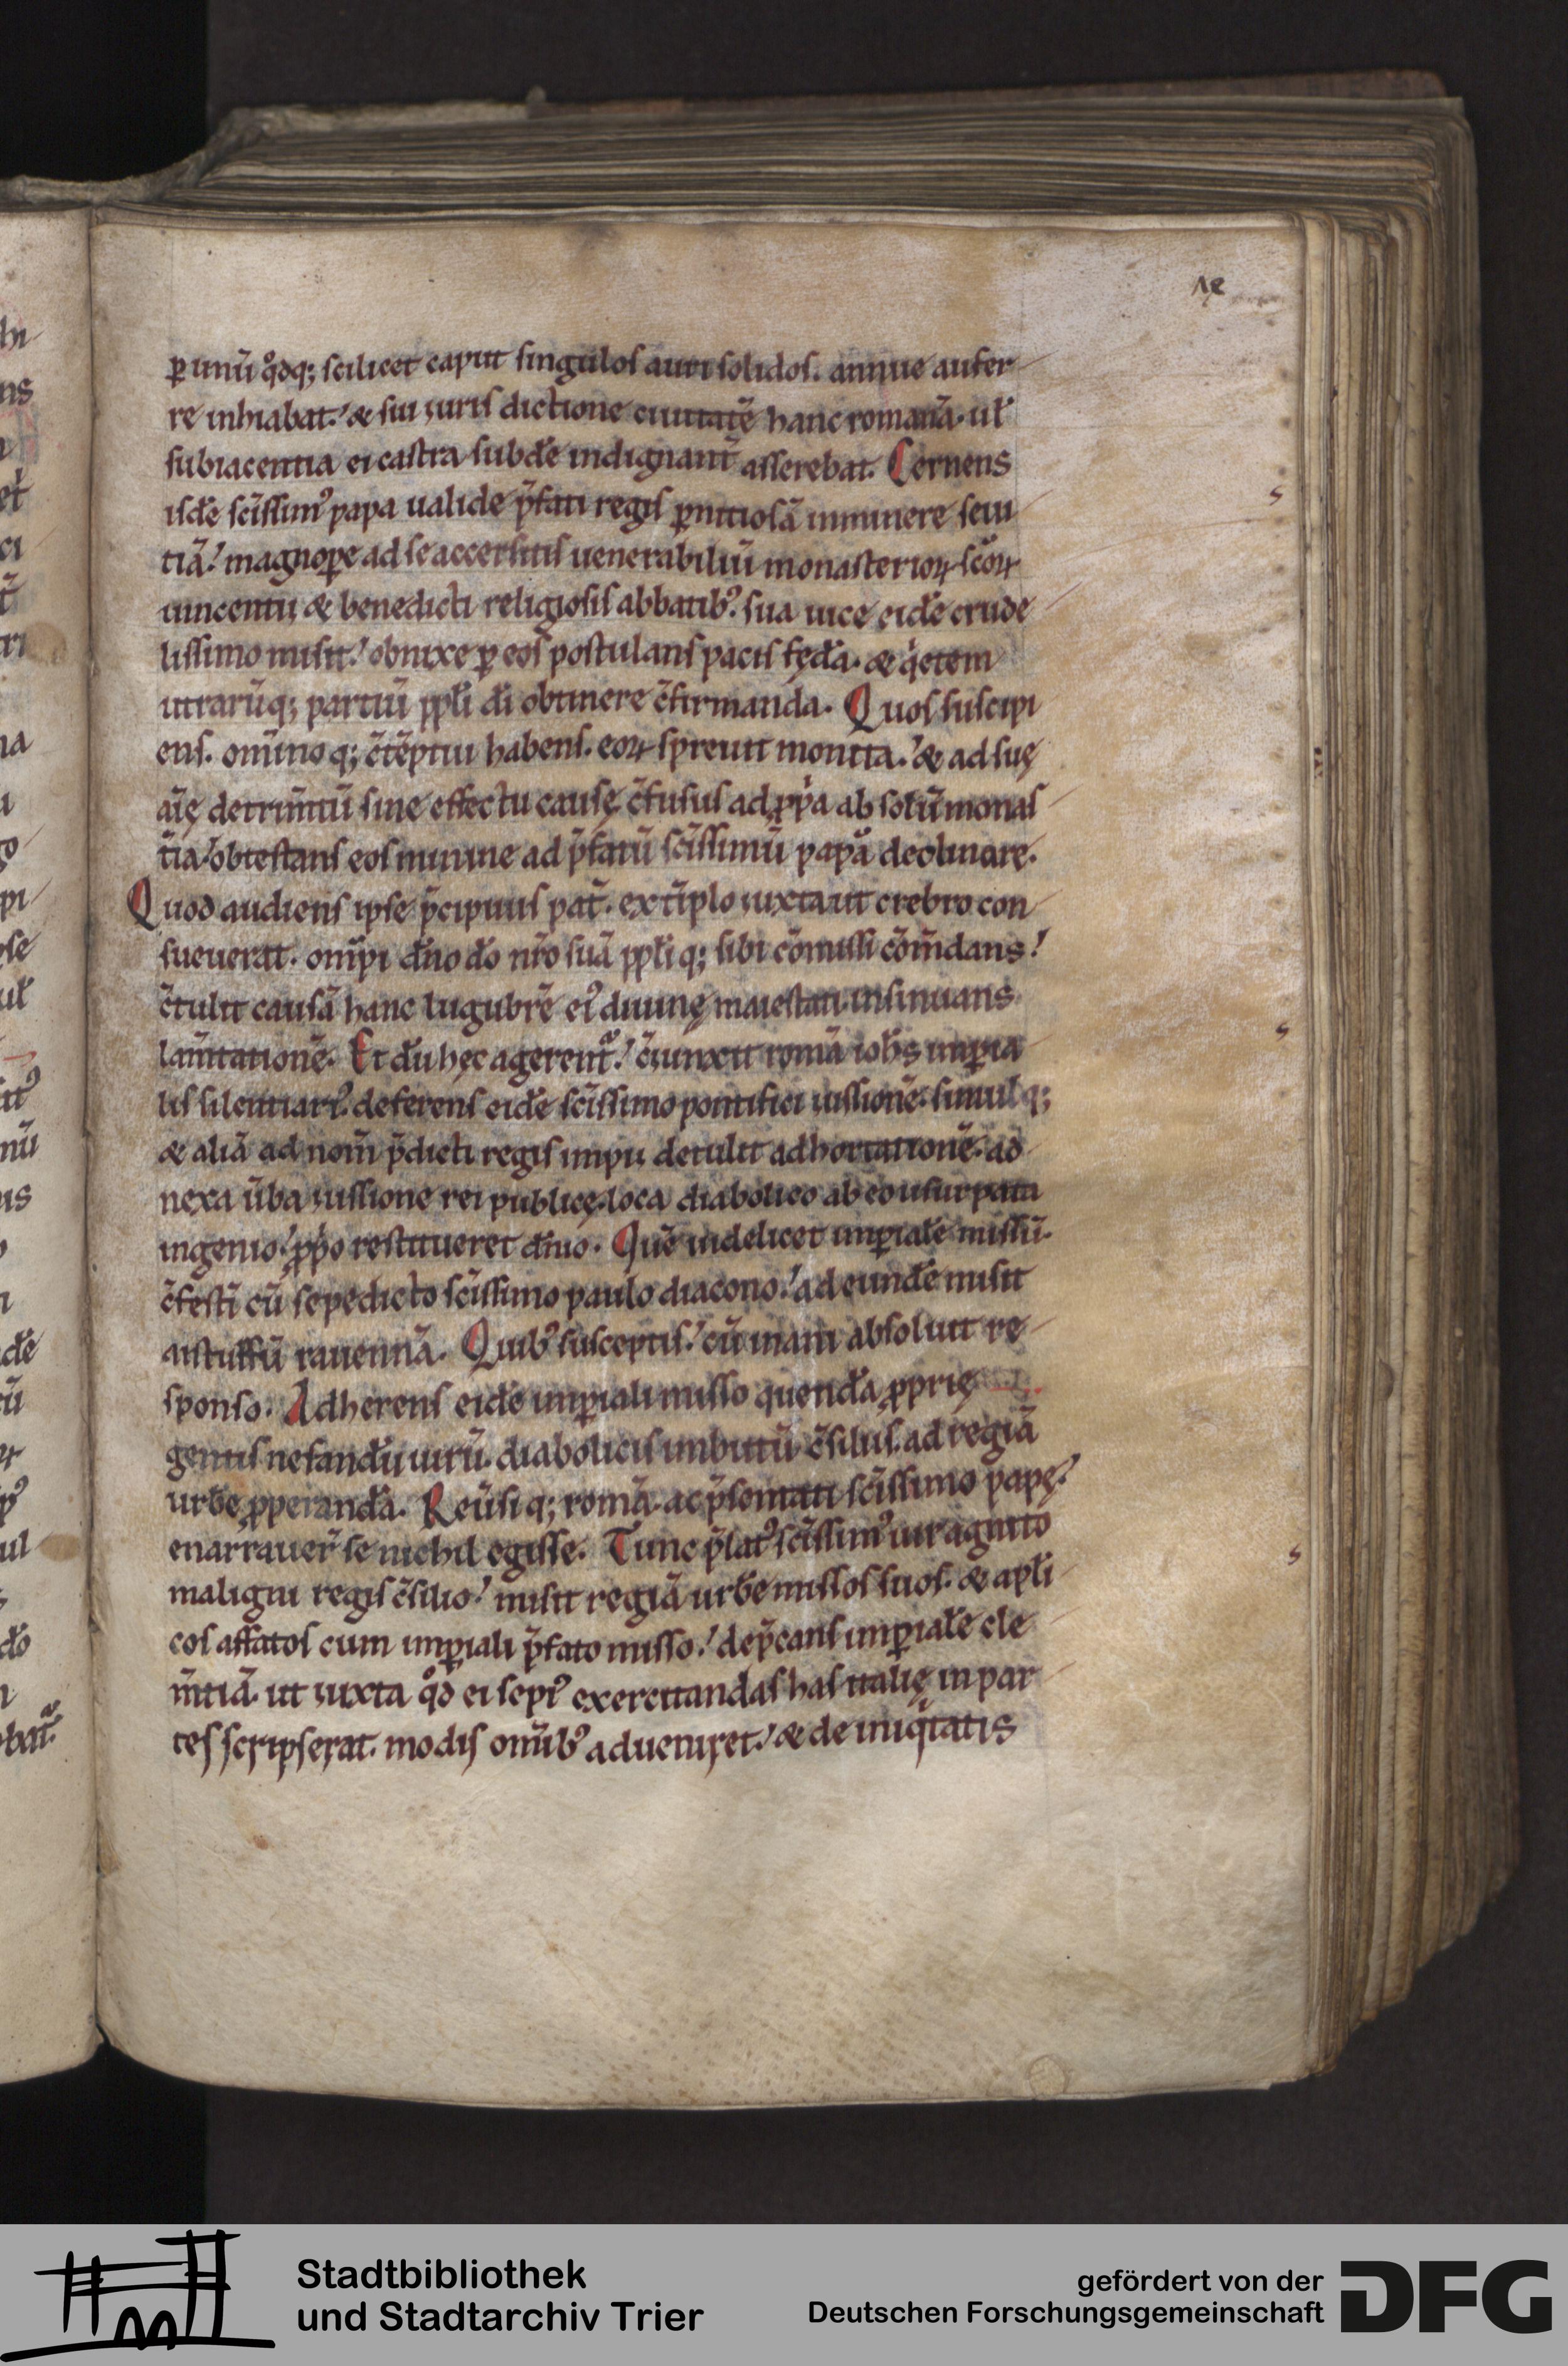 ꝑ unū qͦdq; scilicet caput singulos auri solidos. annue aufer
re inhiabat. & sui iuris dictione ciuitatē hanc romanā. uł
subiacentia ei castra subđe indignant̄ asserebat. Cernens
isdē sc̄issimꝰ papa ualide p̄fati regis ꝑnitiosā imminere seui
tiā. magnoꝑe ad se accersitis uenerabiliū monasterioꝝ sc̄oꝝ
uincentii & benedicti religiosis abbatibꝰ. sua uice eidē crude
lissimo misit. obnixe ꝑ eos postulans pacis fędā. & qͥetem
utrarūq; partiū ppłi di obtinere c̄firmanda. Quos suscipi
ens. omīno q; c̄tēptui habens. eoꝝ spreuit monita. & ad suę
aīę detrim̄tū sine effectu causę c̄fusus ad ꝓpͥa absolū monas
t̄ia obtestans eos minime ad p̄fatū sc̄issimū papā declinare.
Quod audiens ipse p̄cipuus pat̄. ext̄plo iuxta ut crebro con
sueuerat. omp̄i dn̄o dō nr̄o suā ppłi q; sibi cōmissi cōm̄dans.
c̄tulit causā hanc lugubrē eiꝰ diuinę maiestati insinuans
lam̄tationē. Et dū hęc agerent̄. c̄iunxit romā ioħs imꝑia
lis silentiariꝰ. deferens eidē sc̄issimo pontifici iussionē. simulq;
& aliā ad nom̄ p̄dicti regis impii detulit adhortationē. ad
nexa ūba iussione rei publicę. loca diabolico ab eo usurpata
ingenio. ꝓpͥo restitueret dn̄io. Quē uidelicet imꝑialē missū.
c̄festī cū sepedicto sc̄issimo paulo diacono. ad eundē misit
aistulfū rauennā. Quibꝰ susceptis. cū inani absoluit re
sponso. Adherens eidē imꝑiali misso quendā ꝓprię
gentis nefandū uirū. diabolicis imbutū c̄siliis. ad regiā
urbē ꝓperandā. Reūsi q; romā. ac p̄sentati sc̄issimo papę.
enarrauer̄ se nichil egisse. Tunc p̄latꝰ sc̄issimꝰ uir agnito
maligni regis c̄silio. misit regiā urbē missos suos. & apłi
cos affatos cum imꝑiali p̄fato misso. dep̄cans imꝑialē cle
m̄tiā. ut iuxta qͦd ei sepiꝰ exercitandas has italię in par
tes scripserat. modis om̄ibꝰ adueniret. & de iniqͥtatis
Stadtbibliothek
und Stadtarchiv Trier
gefördert von der
Deutschen Forschungsgemeinschaft
DFG